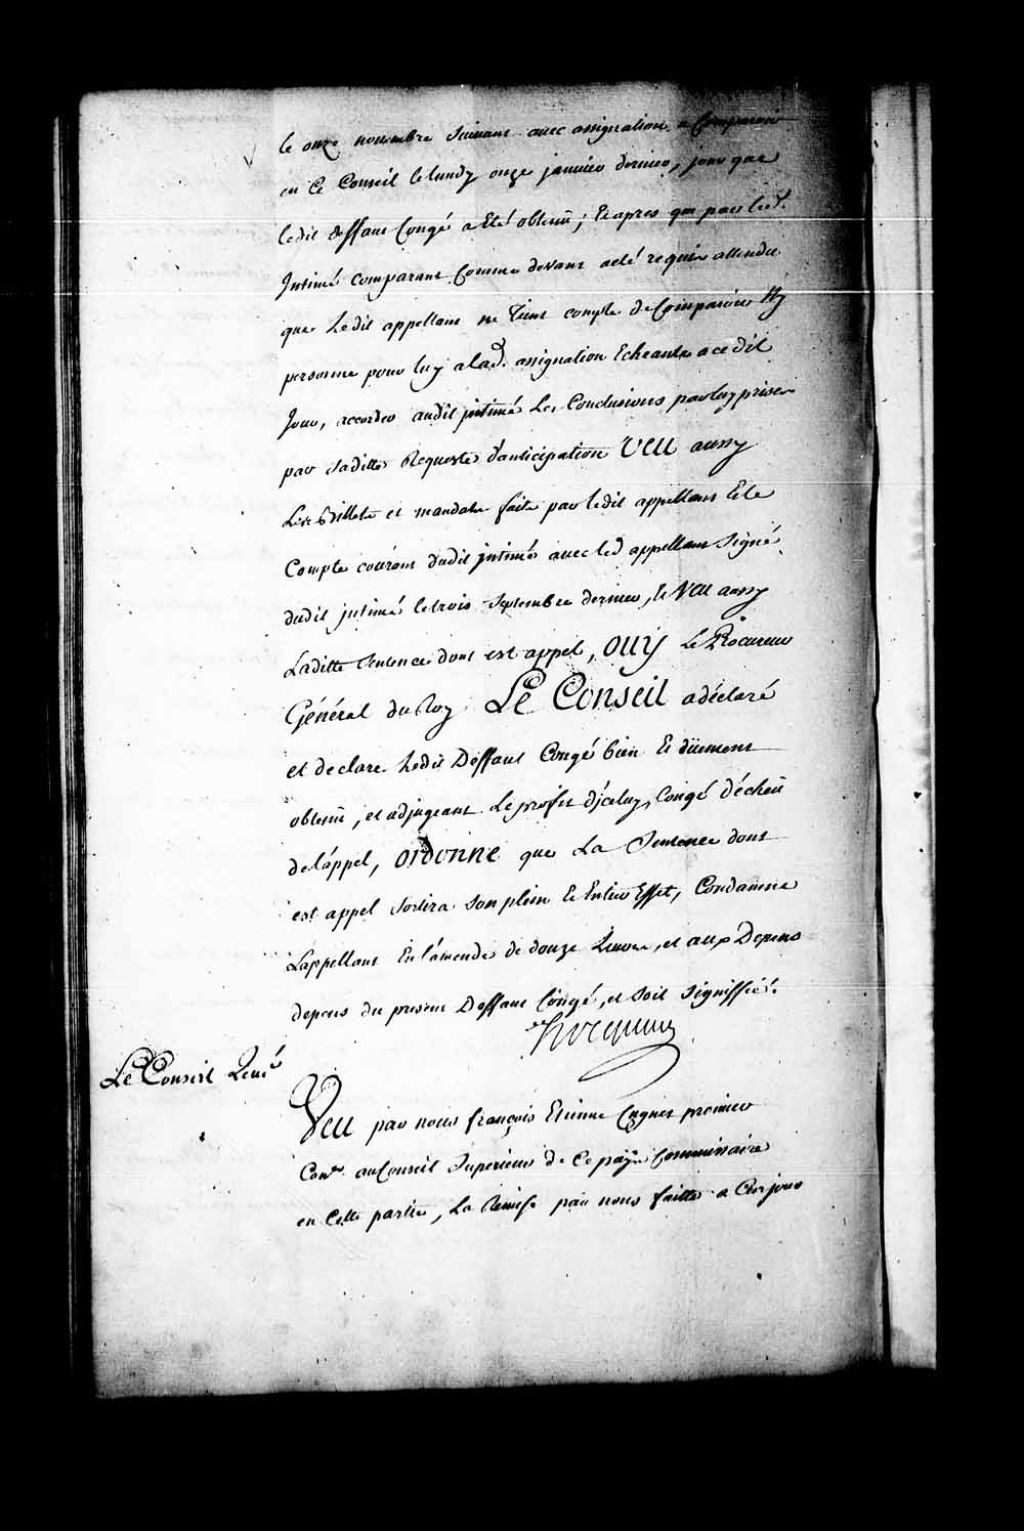 le onze novembre suivant avec assignation a Comparoir
en Ce Conseil le lundy onze janvier dernier, jour que
ledit deffaut Congé a Eté obtenü; Et apres que par led.
Intimé comparant Comme devant a eté requis attendu
que Ledit appellant ne Tient compte de Comparoir Ny
personne pour luy a lad. assignation Echeante a cedit
Jour, accorder audit intimé Les Conclusions par luy prises
par Saditte Requeste d'anticipation VEU aussy
Les billets et mandats faits par ledit appellant Et le
Compte courant dudit intimé avec led appellant Signé
dudit intimé le trois Septembre dernier, Et VEU aussy
Laditte Sentence dont est appel, OUY Le Procureur
Général du Roy LE CONSEIL a déclaré
et declare Ledit Deffaut Congé bien Et düement
obtenü, et adjugeant Le profit d'jceluy, Congé d'écheü
de l'appel, ORDONNE que La Sentence dont
est appel Sortira Son plein Et Entier Effet, Condamne
L'appellant En l'amende de douze Livres, et aux Depens
depens du present Deffaut Congé, et soit Signiffié.
Hocquart
Le Conseil Levé
Veu par nous françois Etienne Cugnet premier
Coner. au Conseil Superieur de Ce païs Commissaire
en Cette partie, La Remise par nous faitte a Ces jour